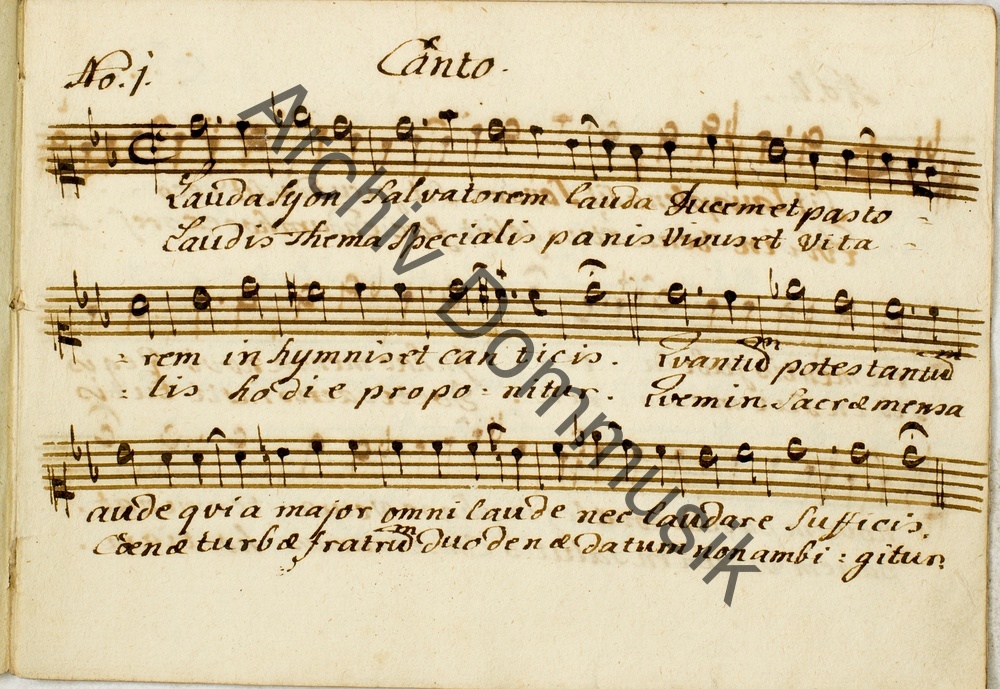 No. 1.
Canto.
Lauda Syon Salvatorem lauda Ducem et pasto -
Laudis Thema Specialis panis Vivus et Vita -
- rem in hymnis et canticis. Qvantũ potes tantũ
- lis hodie propo - nitur. Qvem in Sacræ mensa
aude qvia major omni laude nec laudare Sufficis.
Cœnæ turbæ fratrũ duodenæ datum non ambi - gitur.
Archiv Dommusik